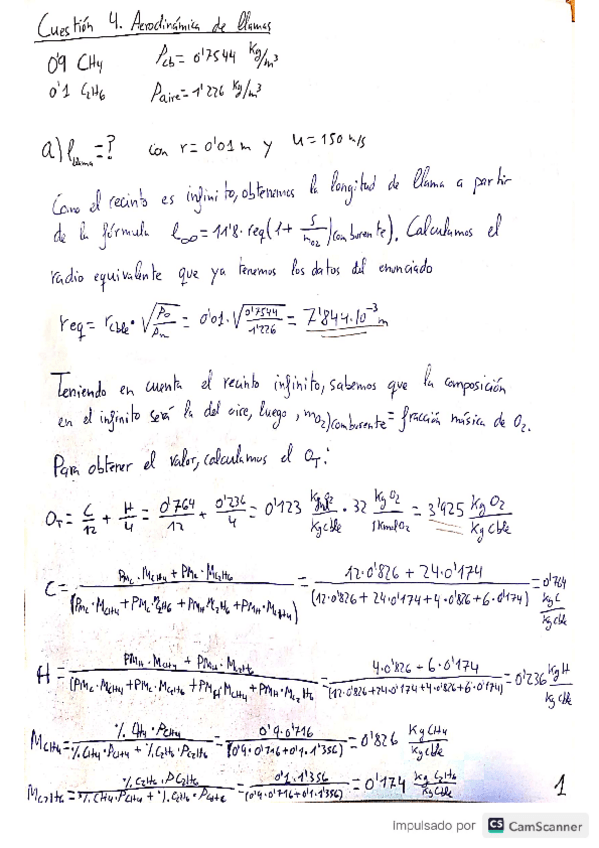 Cuestión 4. Aerodinámica de llamas
0'9 CH4 ρcb = 0'7544 Kg/m³
0'1 C2H6 ρaire = 1'226 Kg/m³
a) lllama = ? con r = 0'01 m y u = 150 m/s
Como el recinto es infinito, obtenemos la longitud de llama a partir
de la fórmula l∞ = 11'8 · req (1 + S/mO2)comburente). Calculamos el
radio equivalente que ya tenemos los datos del enunciado
req = rcble · √(ρo/ρ∞) = 0'01 · √(0'7544/1'226) = 7'844·10⁻³ m
Teniendo en cuenta el recinto infinito, sabemos que la composición
en el infinito será la del aire, luego, mO2)comburente = fracción másica de O2.
Para obtener el valor, calculamos el OT:
OT = C/12 + H/4 = 0'764/12 + 0'236/4 = 0'123 /Kgcble · 32 KgO2/1KmolO2 = 3'925 KgO2/Kgcble
C = (PMC · MCH4 + PMC · MC2H6)/(PMC · MCH4 + PMC · MC2H6 + PMH · MC2H6 + PMH · MCH4) = (12·0'826 + 24·0'174)/(12·0'826 + 24·0'174 + 4·0'826 + 6·0'174) = 0'764 KgC/Kgcble
H = (PMH · MCH4 + PMH · MC2H6)/(PMC · MCH4 + PMC · MC2H6 + PMH · MCH4 + PMH · MC2H6) = (4·0'826 + 6·0'174)/(12·0'826 + 24·0'174 + 4·0'826 + 6·0'174) = 0'236 KgH/Kgcble
MCH4 = (% CH4 · ρCH4)/(% CH4 · ρCH4 + % C2H6 · ρC2H6) = (0'9·0'716)/(0'9·0'716 + 0'1·1'356) = 0'826 KgCH4/Kgcble
MC2H6 = (% C2H6 · ρC2H6)/(% CH4 · ρCH4 + % C2H6 · ρC2H6) = (0'1·1'356)/(0'9·0'716 + 0'1·1'356) = 0'174 Kg C2H6/Kgcble
1
Impulsado por CS CamScanner